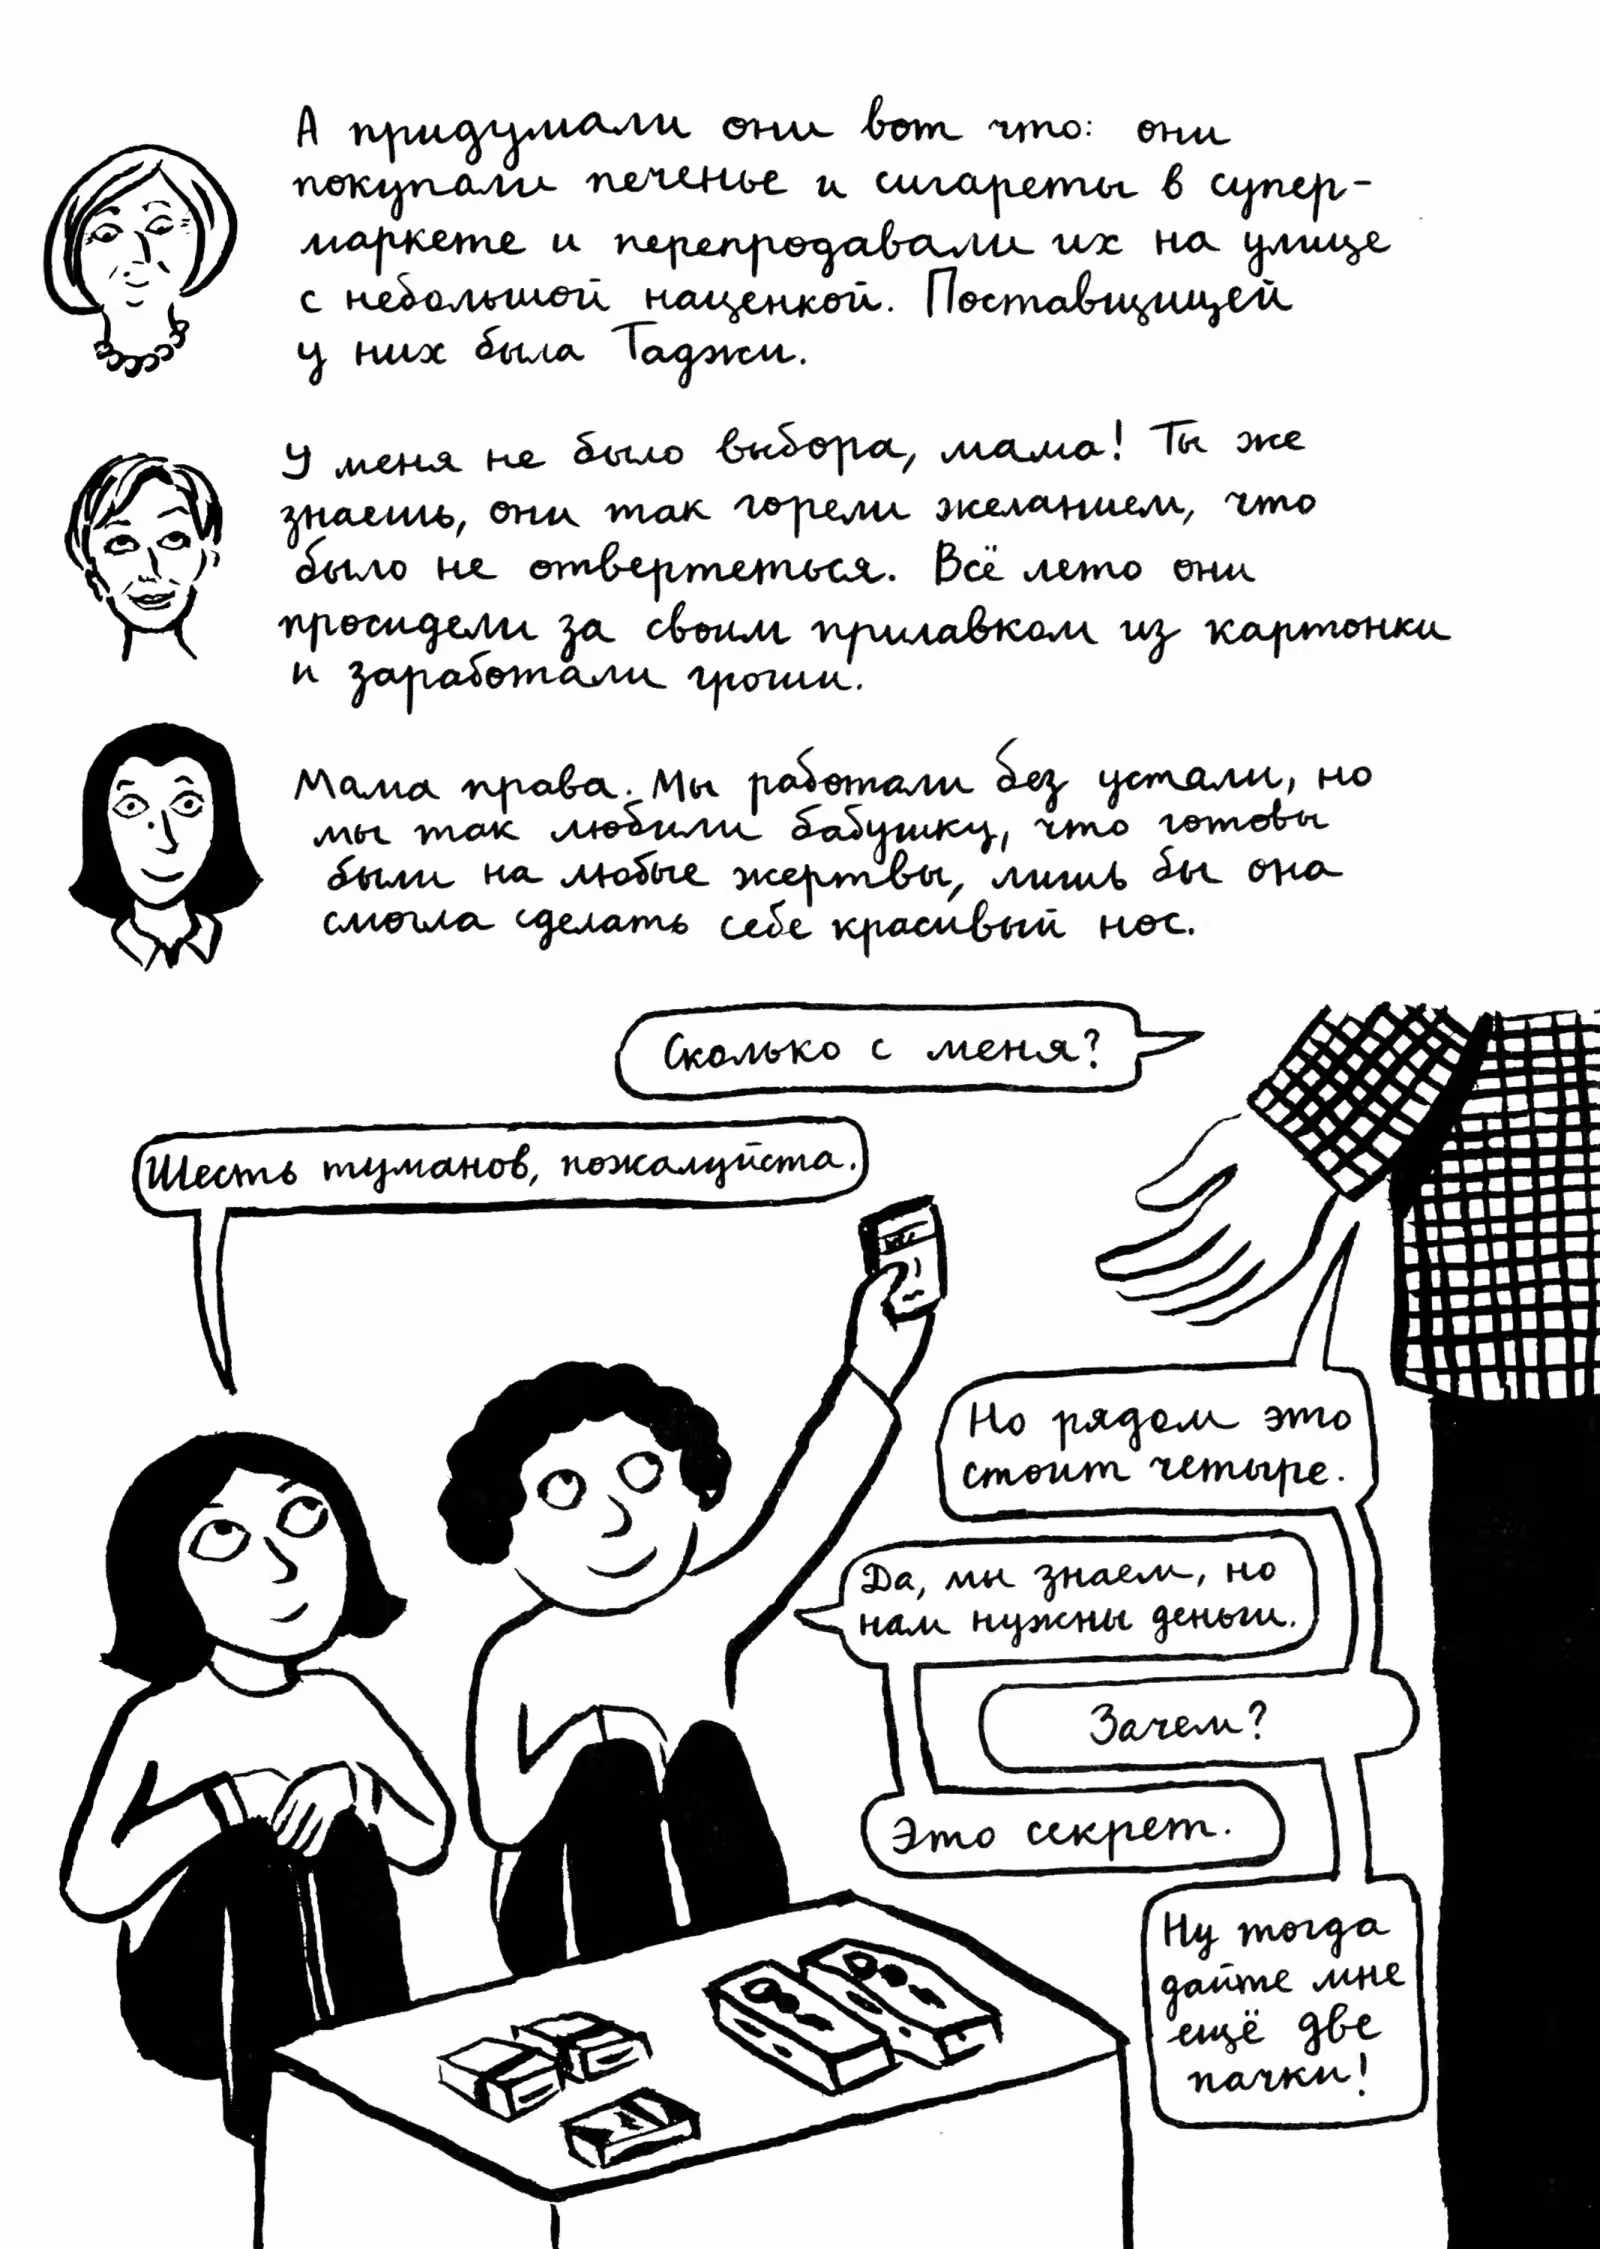 А придумали они вот что: они
покупали печенье и сигареты в супер-
маркете и перепродавали их на улице
с небольшой наценкой. Поставщицей
у них была Таджи.
У меня не было выбора, мама! Ты же
знаешь, они так горели желанием, что
было не отвертеться. Всё лето они
просидели за своим прилавком из картонки
и заработали гроши.
Мама права. Мы работали без устали, но
мы так любили бабушку, что готовы
были на любые жертвы, лишь бы она
смогла сделать себе красивый нос.
Сколько с меня?
Шесть туманов, пожалуйста.
Но рядом это
стоит четыре.
Да, мы знаем, но
нам нужны деньги.
Зачем?
Это секрет.
Ну тогда
дайте мне
ещё две
пачки!